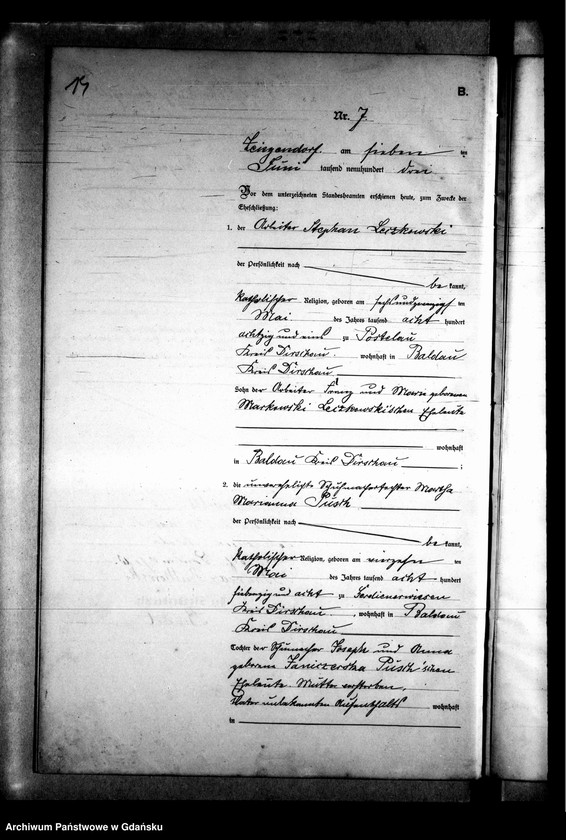 14
B.
Nr. 7
am sieben ten
Juni tausend neunhundert drei
Vor dem unterzeichneten Standesbeamten erschienen heute, zum Zwecke der
Eheschließung:
1. der Arbeiter Stephan Leszkowski
der Persönlichkeit nach
be kannt,
katholischer Religion, geboren am sechsundzwanzigsten
Mai des Jahres tausend acht hundert
achtzig und eins zu Postelau
Kreis Dirschau wohnhaft in Baldau
Kreis Dirschau
Sohn der Arbeiter Franz und Marie geborenen
Markowski Leszkowski'schen Eheleute
wohnhaft
in Baldau Kreis Dirschau ;
2. die unverehelichte Schuhmachertochter Martha
Marianna Püsch
der Persönlichkeit nach
be kannt,
katholischer Religion, geboren am vierzehn ten
Mai des Jahres tausend acht hundert
siebenzig und acht zu
Kreis Dirschau, wohnhaft in Baldau
Kreis Dirschau
Tochter der Schumacher Joseph und Anna
geborene Püsch'schen
Eheleute Mutter verstorben,
Vater unbekannten Aufenthalts wohnhaft
in
Archiwum Państwowe w Gdańsku